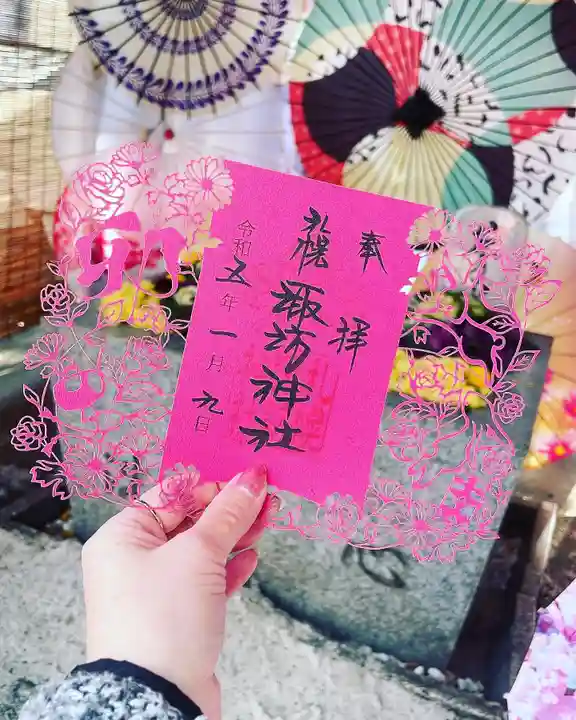 奉拝
札幌
諏訪神社
令和五年一月九日
卯